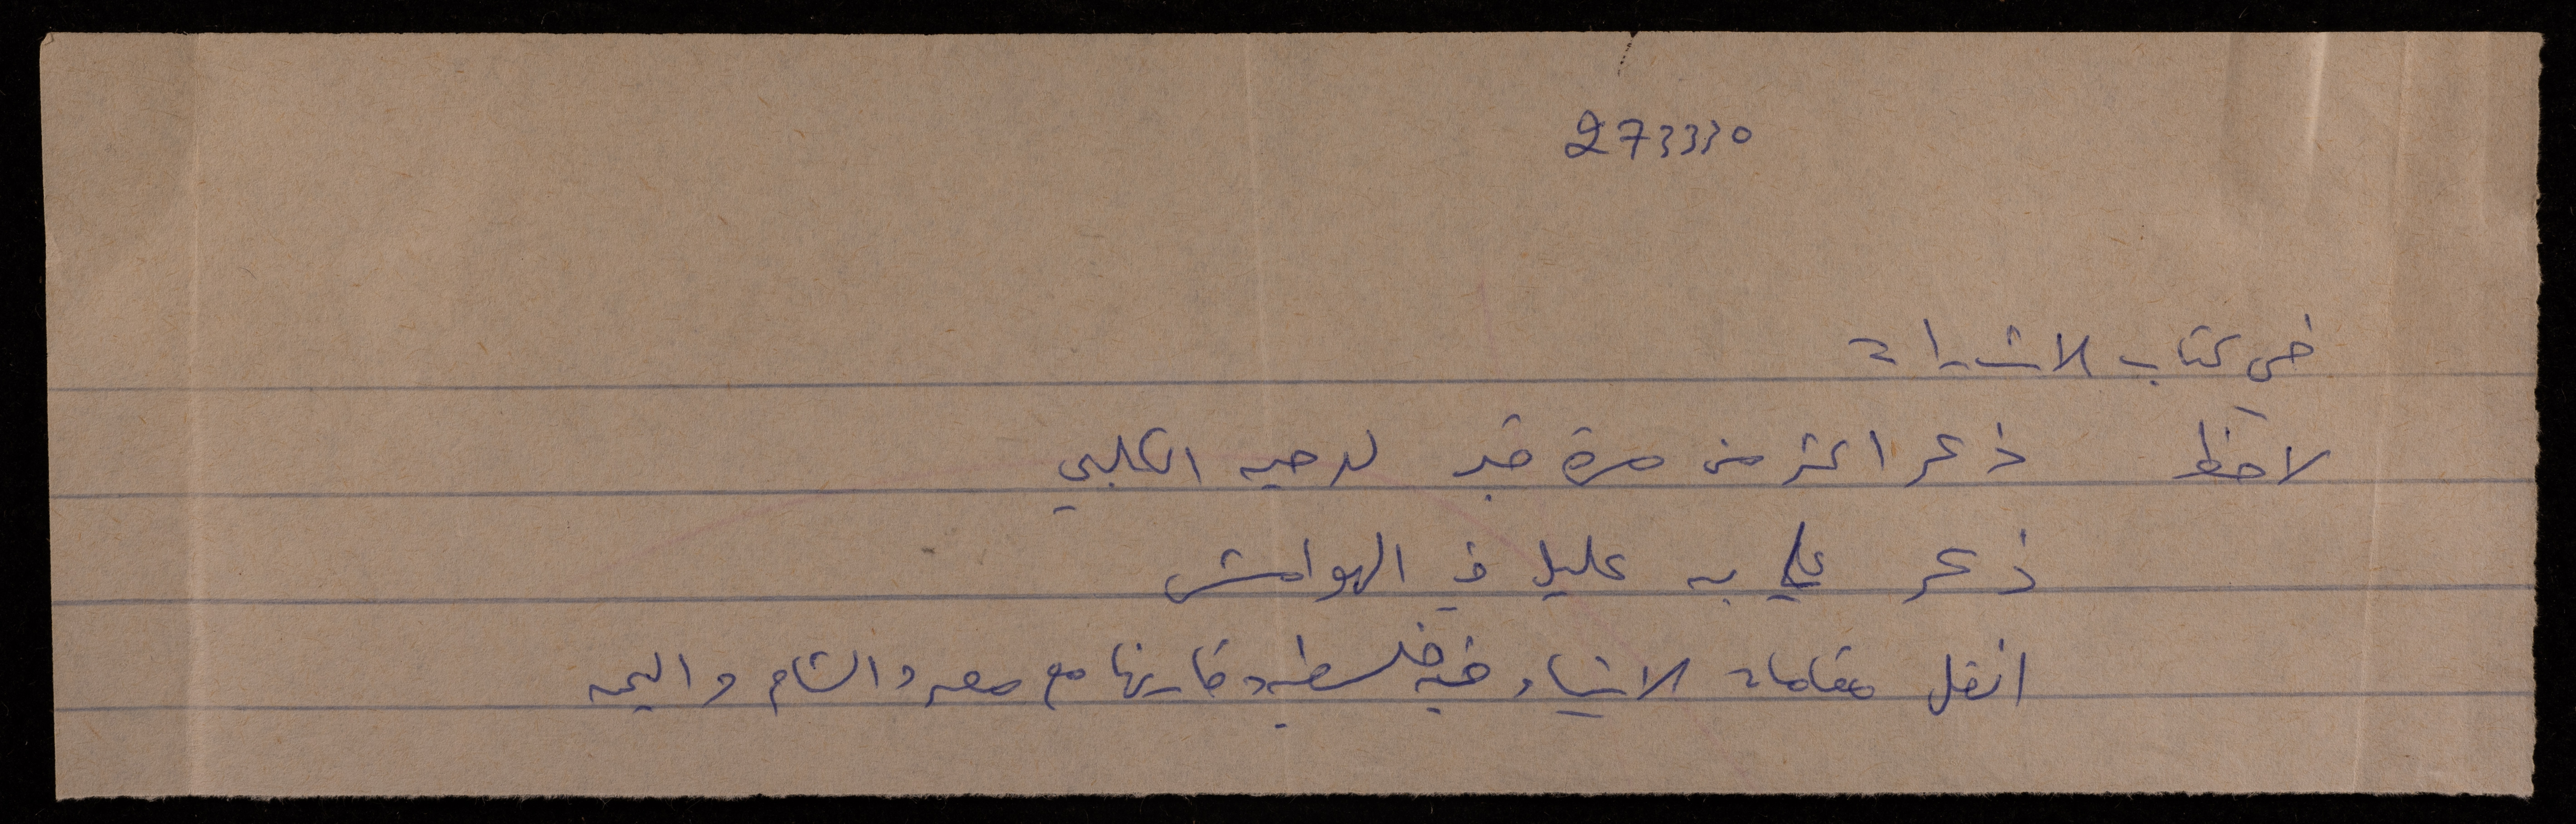 273330
في كتاب الاشارات
لاحظ ذكر اكثر من مرة قبر لدحيه الكلبي
ذكر علي بن عليل في الهوامش
انقل مقامات الانبياء في فلسطين وقارنها مع مصر والشام واليمن